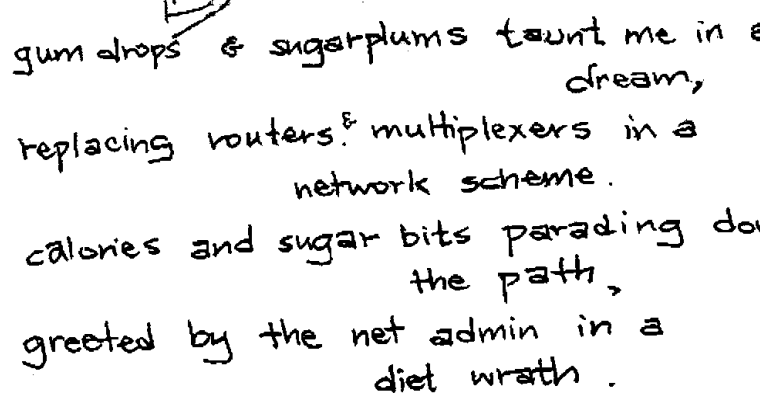 gum drops & sugarplums taunt me in a
dream,
replacing routers & multiplexers in a
network scheme.
calories and sugar bits parading
the path,
greeted by the net admin in a
diet wrath.